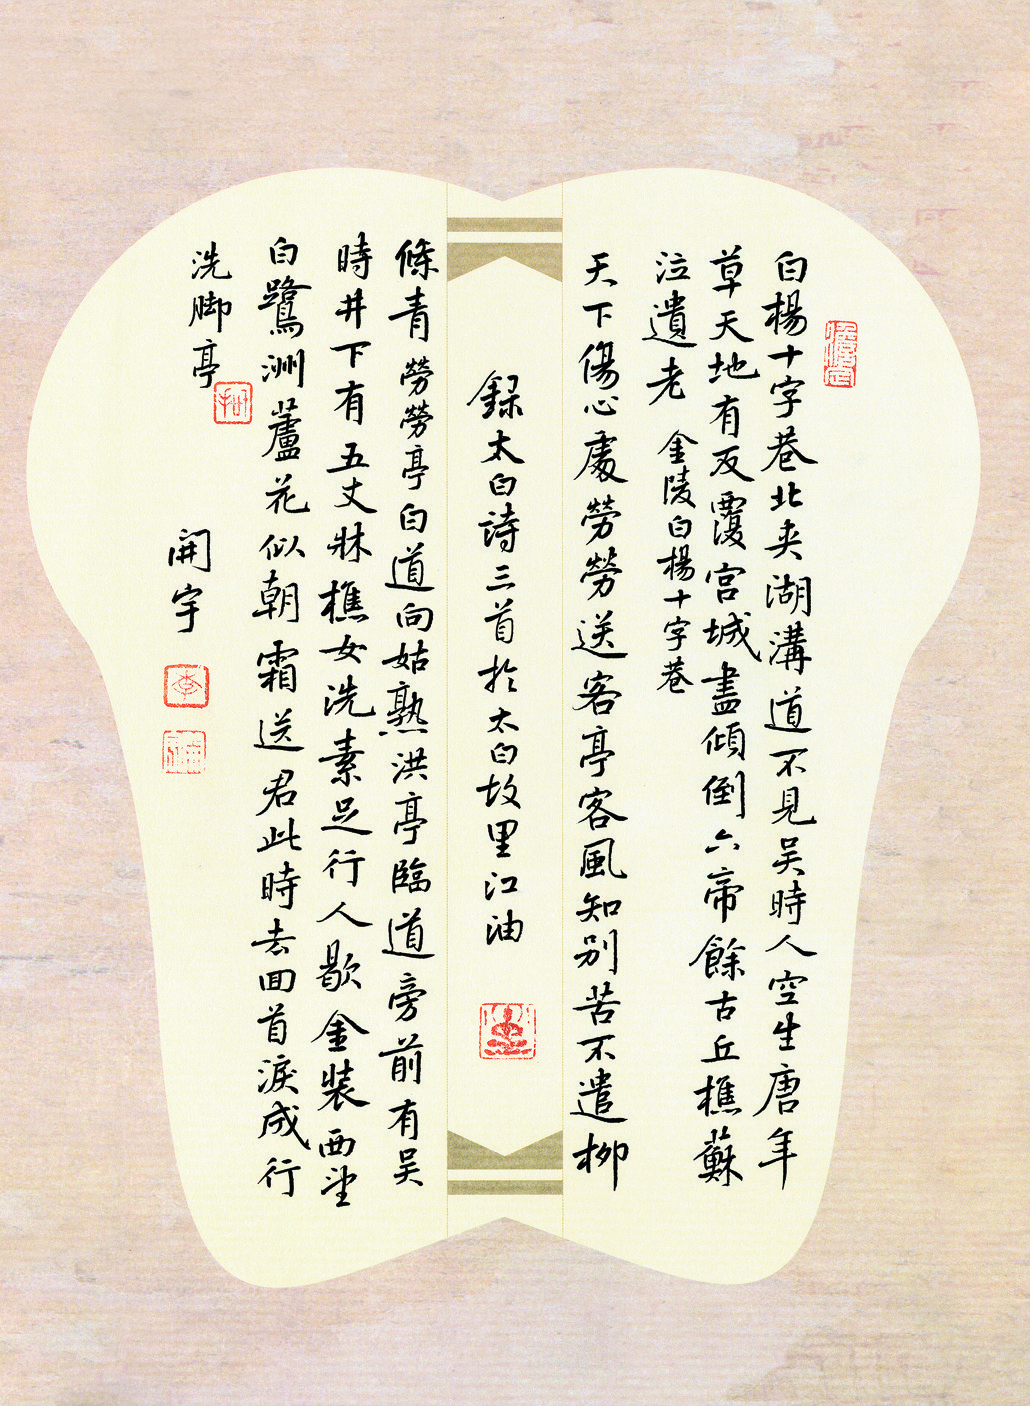 白楊十字巷北夾湖溝道不見吴時人空生唐年
草天地有反覆宫城盡傾倒六帝餘古丘樵蘇
泣遺老 金陵白楊十字巷
天下傷心處勞勞送客亭客風知别苦不遣柳
録太白詩三首於太白故里江油
條青 勞勞亭 白道向姑熟洪亭臨道旁前有吴
時井下有五丈牀樵女洗素足行人歇金装西望
白鷺洲蘆花似朝霜送君此時去回首淚成行
洗脚亭
開宇
李